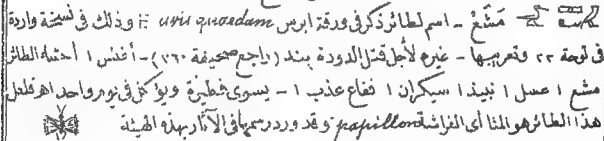 مَشَغ – اسم لطائر ذكر فى ورقة ابرس avis quaedam وذلك فى نسخة واردة
فى لوحة ٢٢ وتعريبها – غيره لأجل قتل الدودة پند (راجع صحيفة ٢٦٠) – أفنس ١ أحشاء الطائر
مشغ ١ عسل ١ نبيذ ١ سيكران ١ نفاع عذب ١ – يسوى فطيرة ويؤكل فى يوم واحد اهـ فلعل
هذا الطائر هو المثا أى الفراشة papillon وقد ورد رسمها فى الآثار بهذه الهيئة